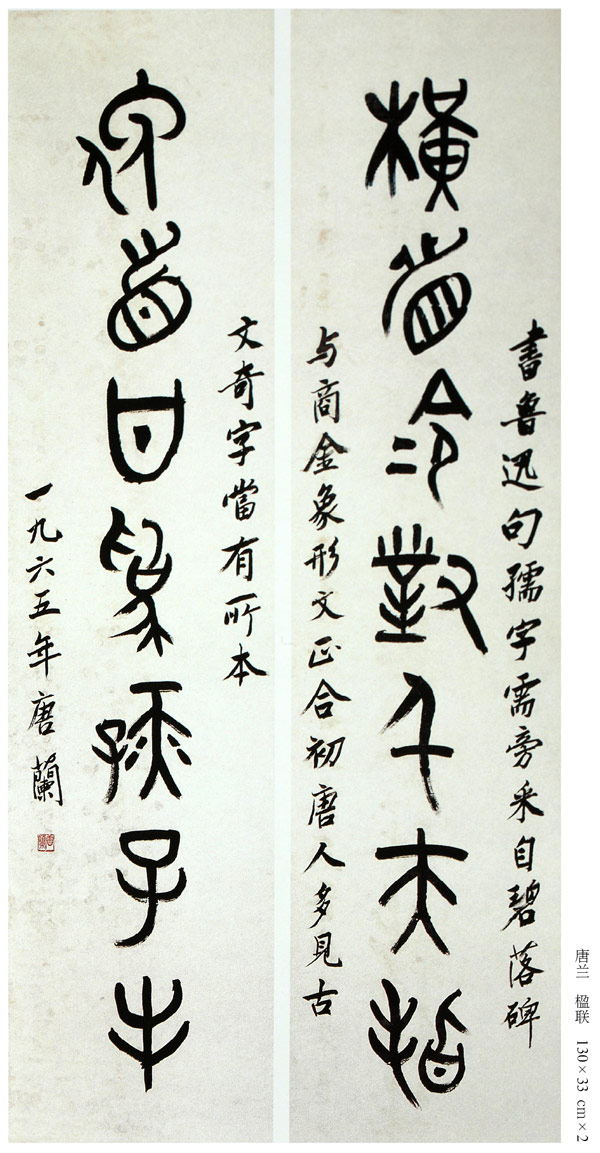 橫眉冷對千夫指
書魯迅句孺字需旁采自碧落碑
与商金象形文正合初唐人多見古
俯首甘爲孺子牛
文奇字當有所本
一九六五年唐蘭
唐兰 楹联 130×33 cm×2